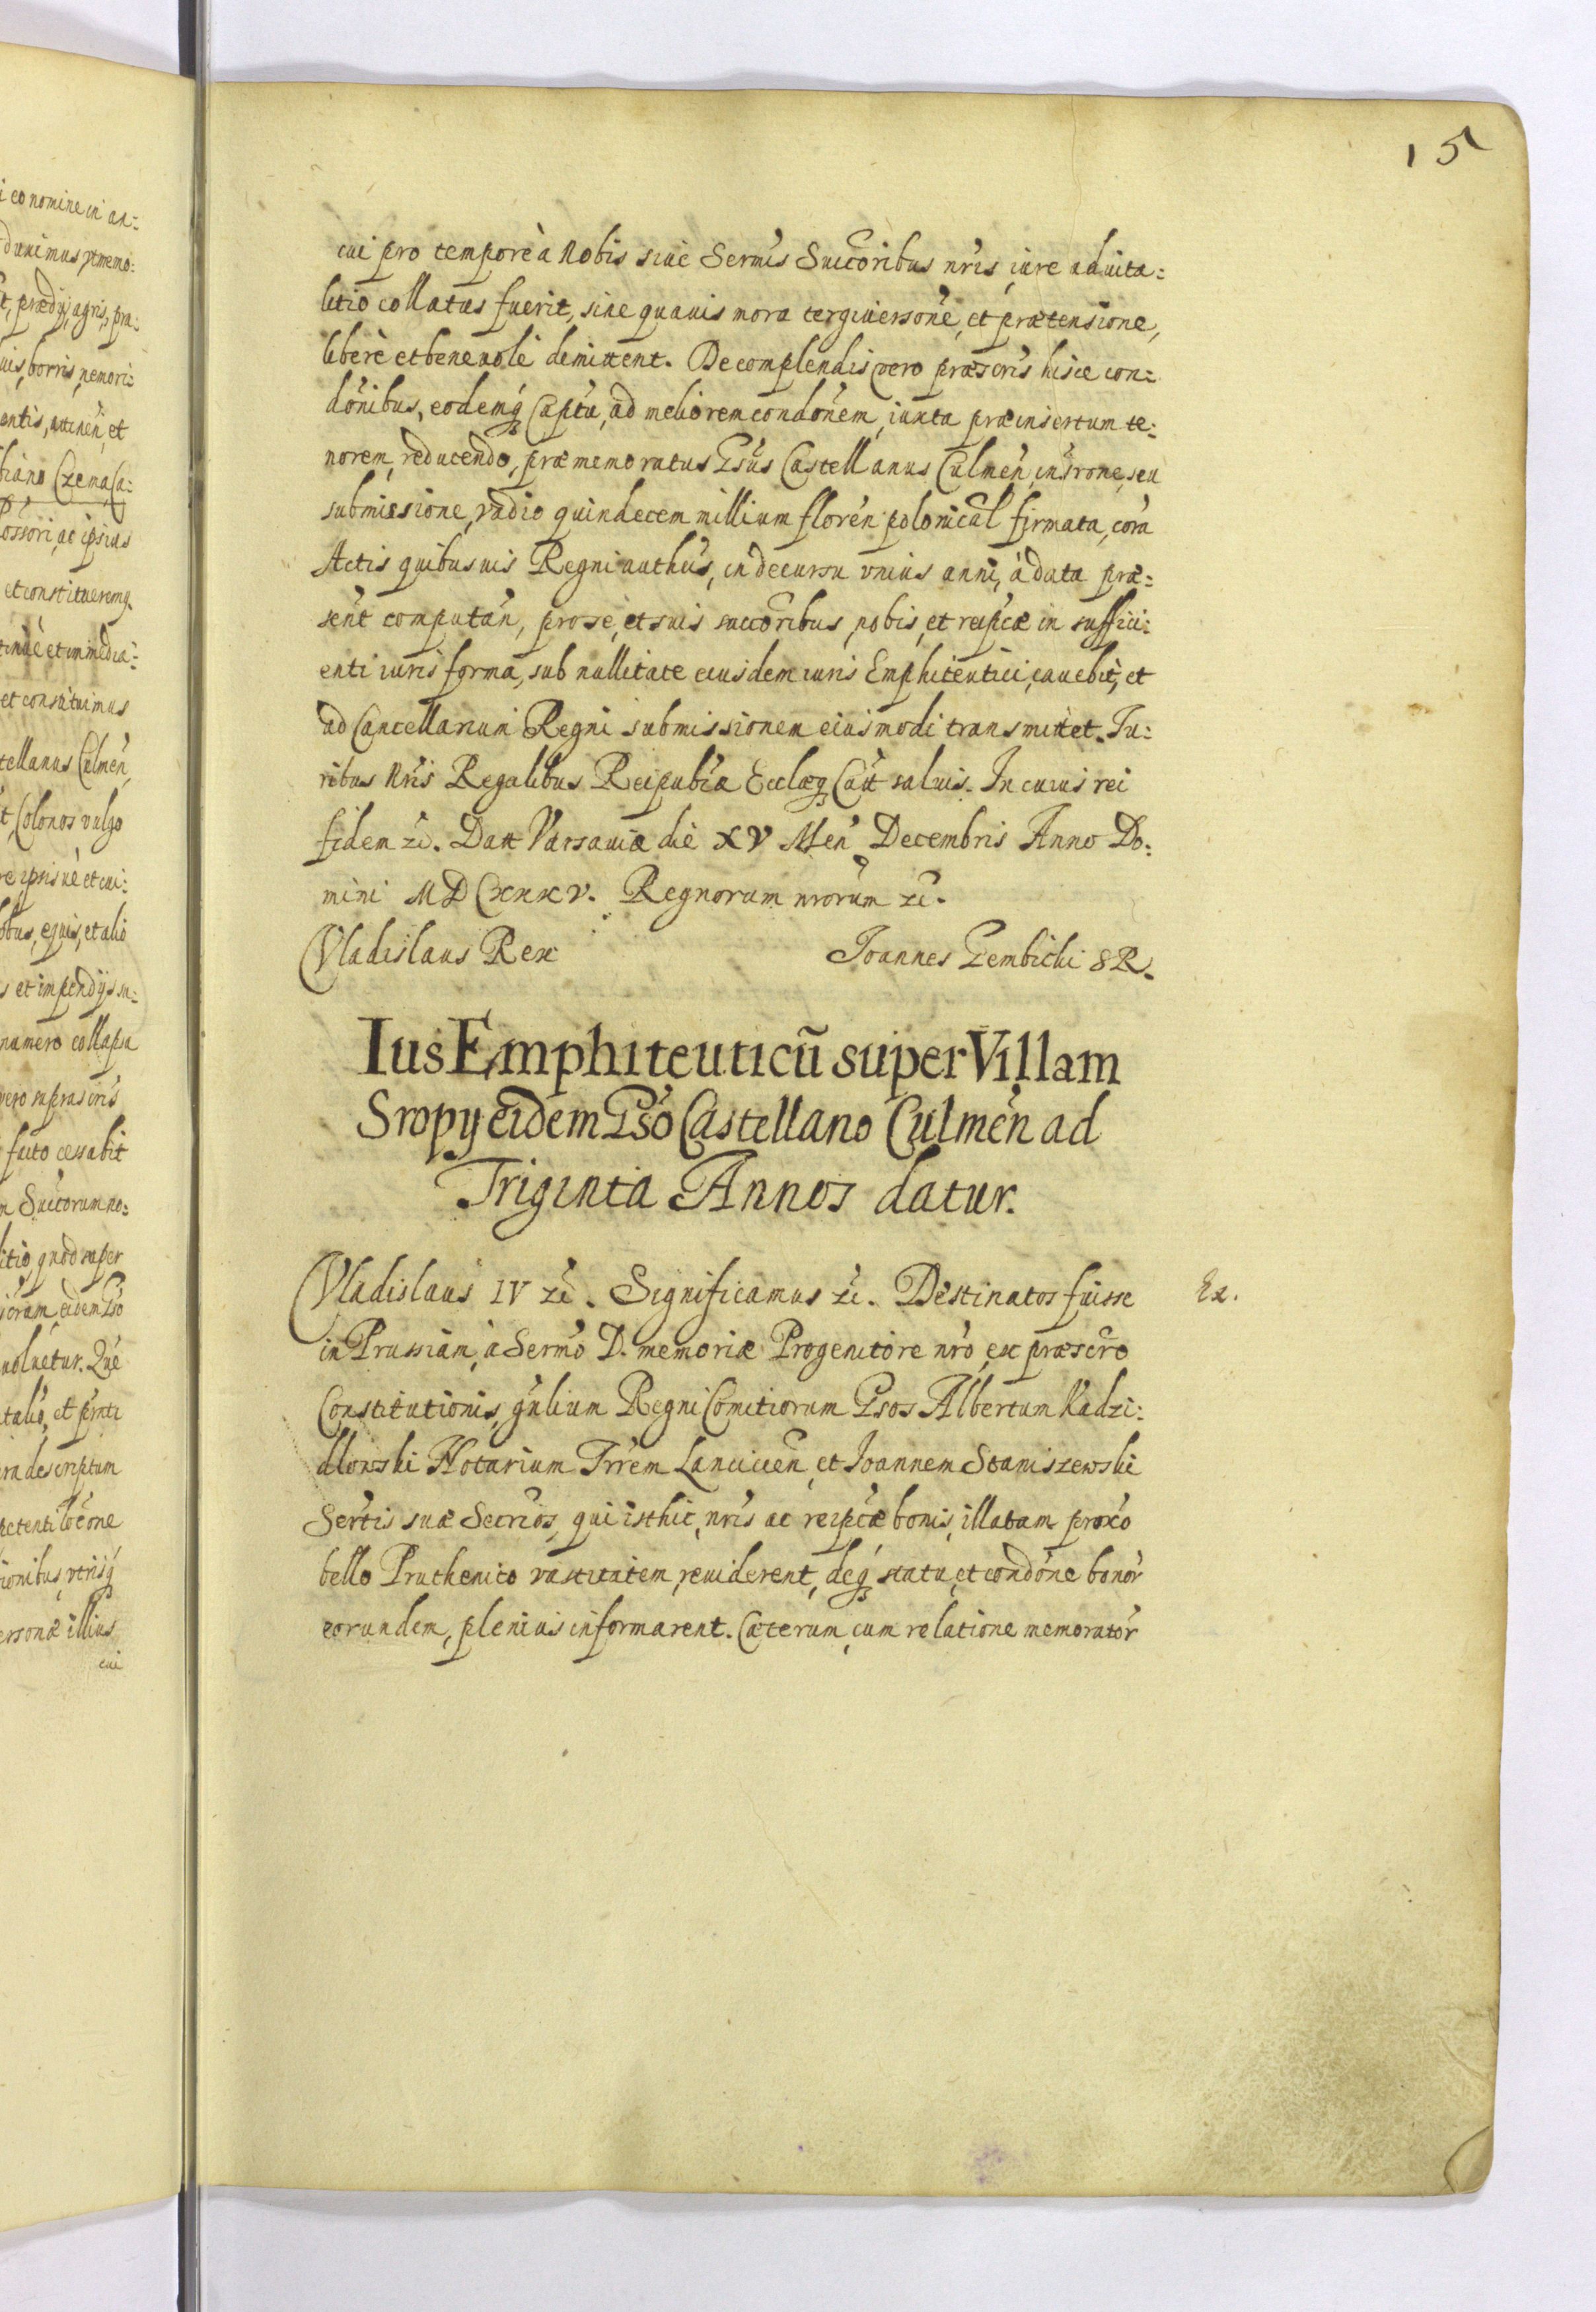 15
cui pro tempore à Nobis siue Sermis Succoribus nris, iure aduita:
litio collatus fuerit, sine quauis mora tergiuersone, et prætensione,
liberè et beneuolè demittent. De complendis vero præscris hisce con:
donibus, eodemq Captu, ad meliorem condonem, iuxta præinsertum te:
norem, reducendo, præmemoratus Gsus Castellanus Culmen, inscrone, seu
submissione, vadio quindecem millium floren polonical firmata, cora
Actis quibusuis Regni authis, in decursu vnius anni, à data præ:
sent computan, pro se, et suis succoribus, nobis, et reipcæ in suffici:
enti iuris forma, sub nullitate eiusdem iuris Emphiteutici, cauebit, et
ad Cancellariam Regni submissionem eiusmodi transmittet. Iu:
ribus Nris Regalibus Reipubæ Ecclæq Catt saluis. In cuius rei
fidem zc. Datt Varsauiæ die XV Men Decembris Anno Do:
mini MDCXXXV. Regnorum nrorum zc.
Vladislaus Rex Joannes Gembicki SR.
Ius Emphiteuticū super Villam
Sropy eidem Gso Castellano Culmen ad
Triginta Annos datur.
Vladislaus IV zc. Significamus zc. Destinatos fuisse
Ex.
in Prussiam, à Sermo D. memoriæ Progenitore nro, ex præscro
Constitutionis, gnlium Regni Comitiorum Gsos Albertum Kadzi:
dlowski Notarium Trrem Lancicien, et Joannem Staniszewski
Sertis suæ Secrios, qui isthic, nris ac reipcæ bonis, illatam proxo
bello Pruthenico vastitatem, reuiderent, deq statu, et condone bonor
eorundem, plenius informarent. Cæterum, cum relatione memorator